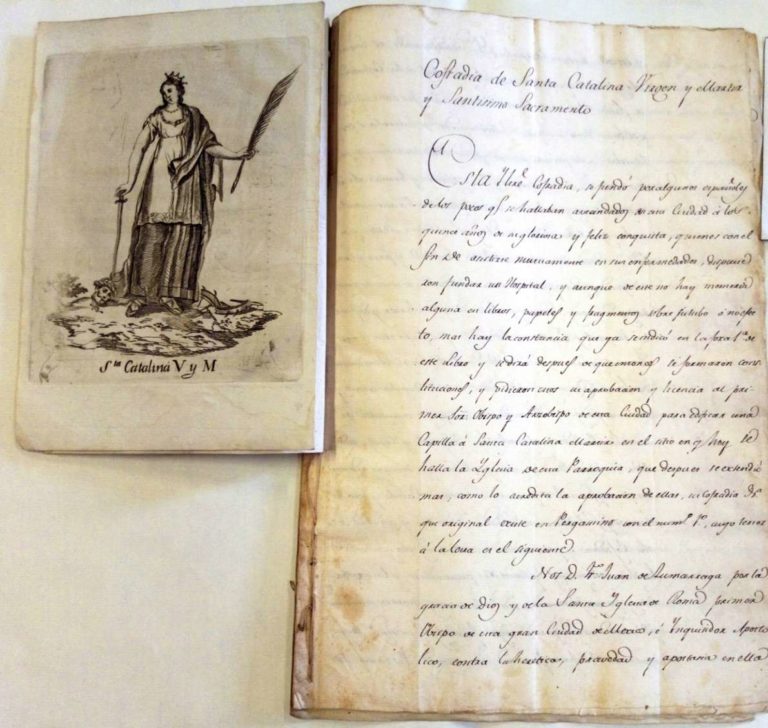 Sta Catalina V y M
Cofradia de Santa Catalina Virgen y Martir
y Santisimo Sacramento
Esta Yltre Cofradia, se fundó por algunos españoles
de los pocos qe se hallaban avecindados en esta Ciudad á los
quince años de su gloriosa y feliz conquista, quienes con el
fin de asistirse mutuamente en sus enfermedades, dispusie
ron fundar un Hospital, y aunque de este no hay memoria
alguna en libros, papeles y fragmentos sobre si tubo ó no efec
to, mas hay la constancia que ya se indicó en la foxa 1a de
este Libro y se dirá despues de que entonces se formaron cons
tituciones, y pidieron su aprobacion y licencia al pri-
mer Sor Obispo y Arzobispo de esta Ciudad para edificar una
Capilla á Santa Catalina Martir en el sitio en qe hoy se
halla la Yglesia de esta Parroquia, que despues se extendió
mas, como lo acredita la aprobacion de ellas, su Cofradia
que original existe en Pergamino con el numo 1o, cuyo tenor
á la letra es el siguiente.
Nos D. Fr Juan de Zumarraga por la
gracia de Dios y de la Santa Yglesia de Roma primer
Obispo de esta gran Ciudad de Mexico, é Ynquisidor Aposto
lico, contra la heretica, pravedad y apostasia en ella